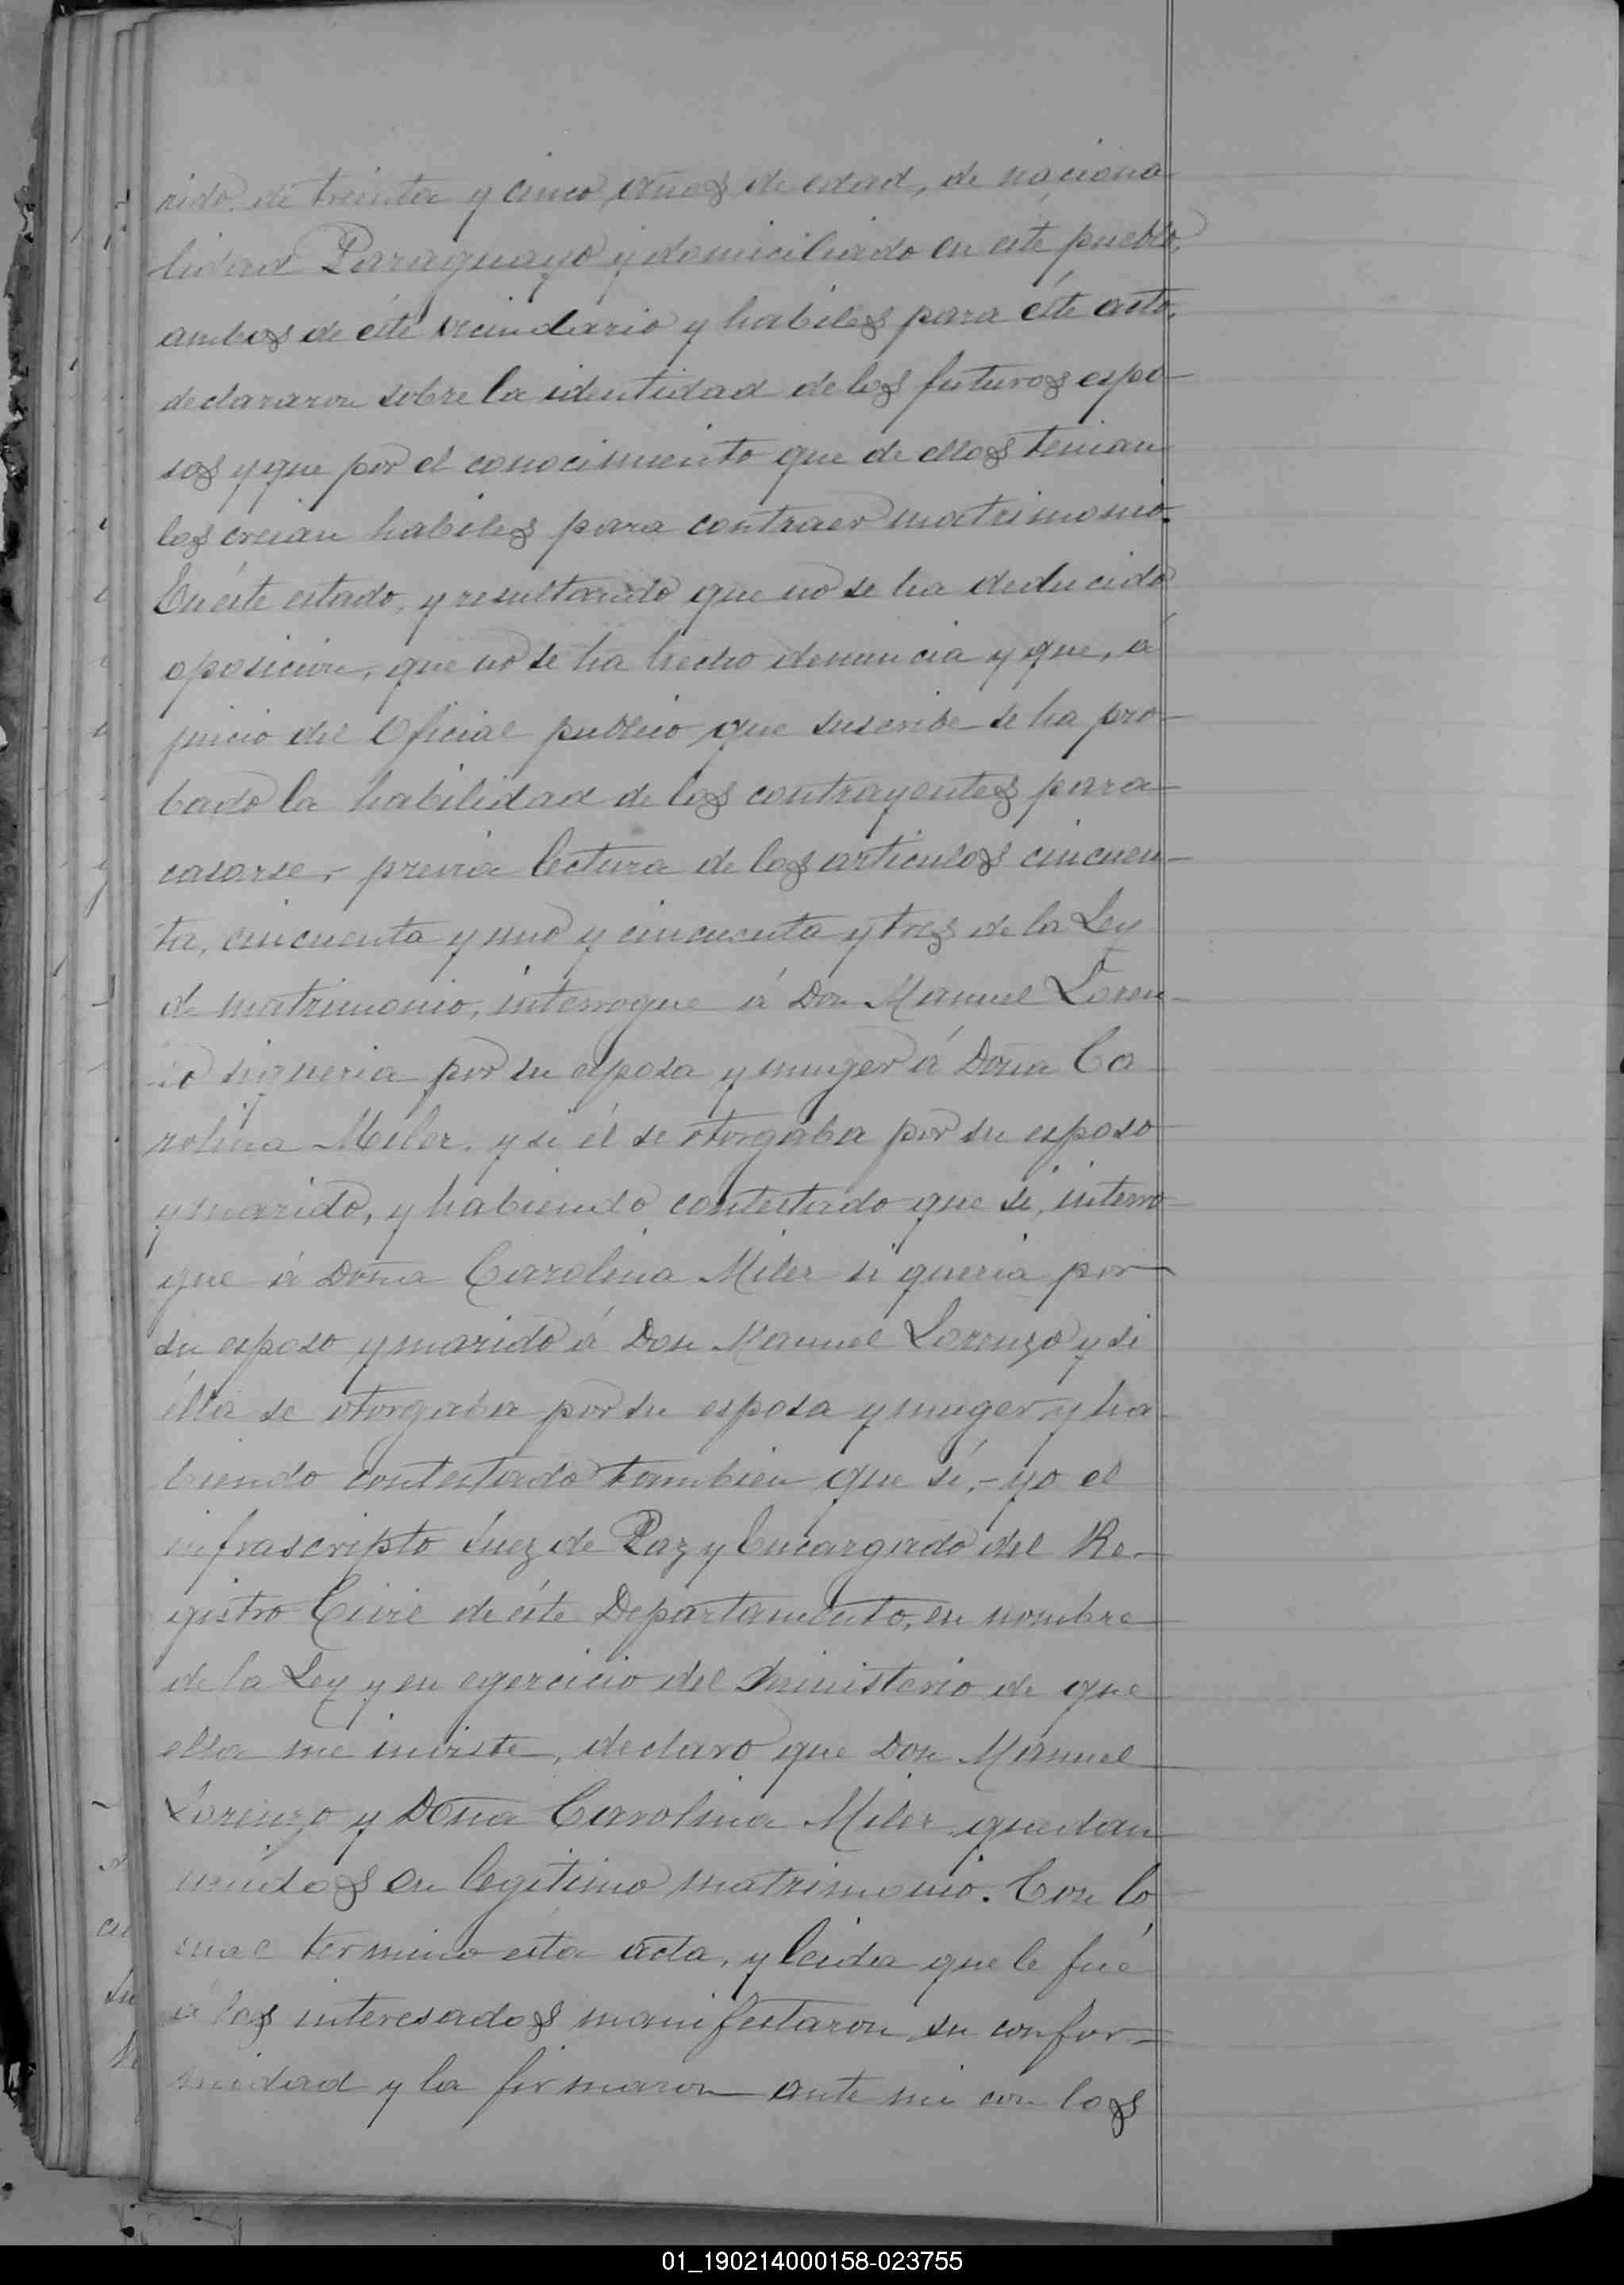 rido, de treinta y cinco años de edad, de naciona-
lidad Paraguayo y domiciliado en este pueblo,
ambos de éste vecindario y habiles para éste acto,
declararon sobre la identidad de los futuros espo-
sos y que por el conocimiento que de ellos tenian
los creian habiles para contraer matrimonio.
En éste estado, y resultando que no se ha deducido
oposicion, que no se ha hecho denuncia y que, á
juicio del Oficial publico que suscribe se ha pro-
bado la habilidad de los contrayentes para
casarse, - previa lectura de los articulos cincuen-
ta, cincuenta y uno y cincuenta y tres de la Ley
de matrimonio, interrogue á Don Manuel Loren-
zo si queria por su esposa y muger á Doña Ca-
rolina Miler, y si él se otorgaba por su esposo
y marido, y habiendo contestado que si, interro-
gue á Doña Carolina Miler si queria por
su esposo y marido á Don Manuel Lorenzo y si
élla se otorgaba por su esposa y muger y ha-
biendo contestado tambien que sí, - yo el
infrascripto Juez de Paz y Encargado del Re-
gistro Civil de éste Departamento, en nombre
de la Ley y en egercicio del ministerio de que
ella me inviste, declaro que Don Manuel
Lorenzo y Doña Carolina Miler quedan
unidos en legitimo matrimonio. Con lo
cual termino esta acta, y leida que le fué
á los interesados manifestaron su confor-
midad y la firmaron ante mi con los
01_190214000158-023755